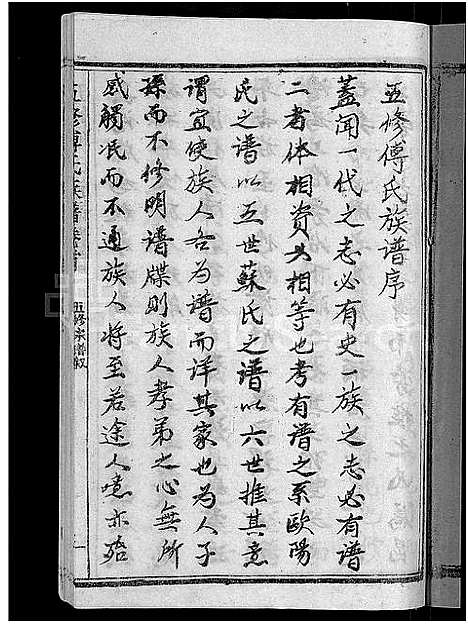 五修傅氏族譜序
蓋聞一代之志必有史一族之志必有譜
二者体相資又相等也考有譜之系歐陽
氏之譜以五世蘇氏之譜以六世推其意
謂宜使族人各为譜而详其家也为人子
孫而不修明譜牒則族人孝弟之心無所
感觸泯而不通族人将至若途人噫亦殆
五修傅氏族譜卷首
五修宗譜叙